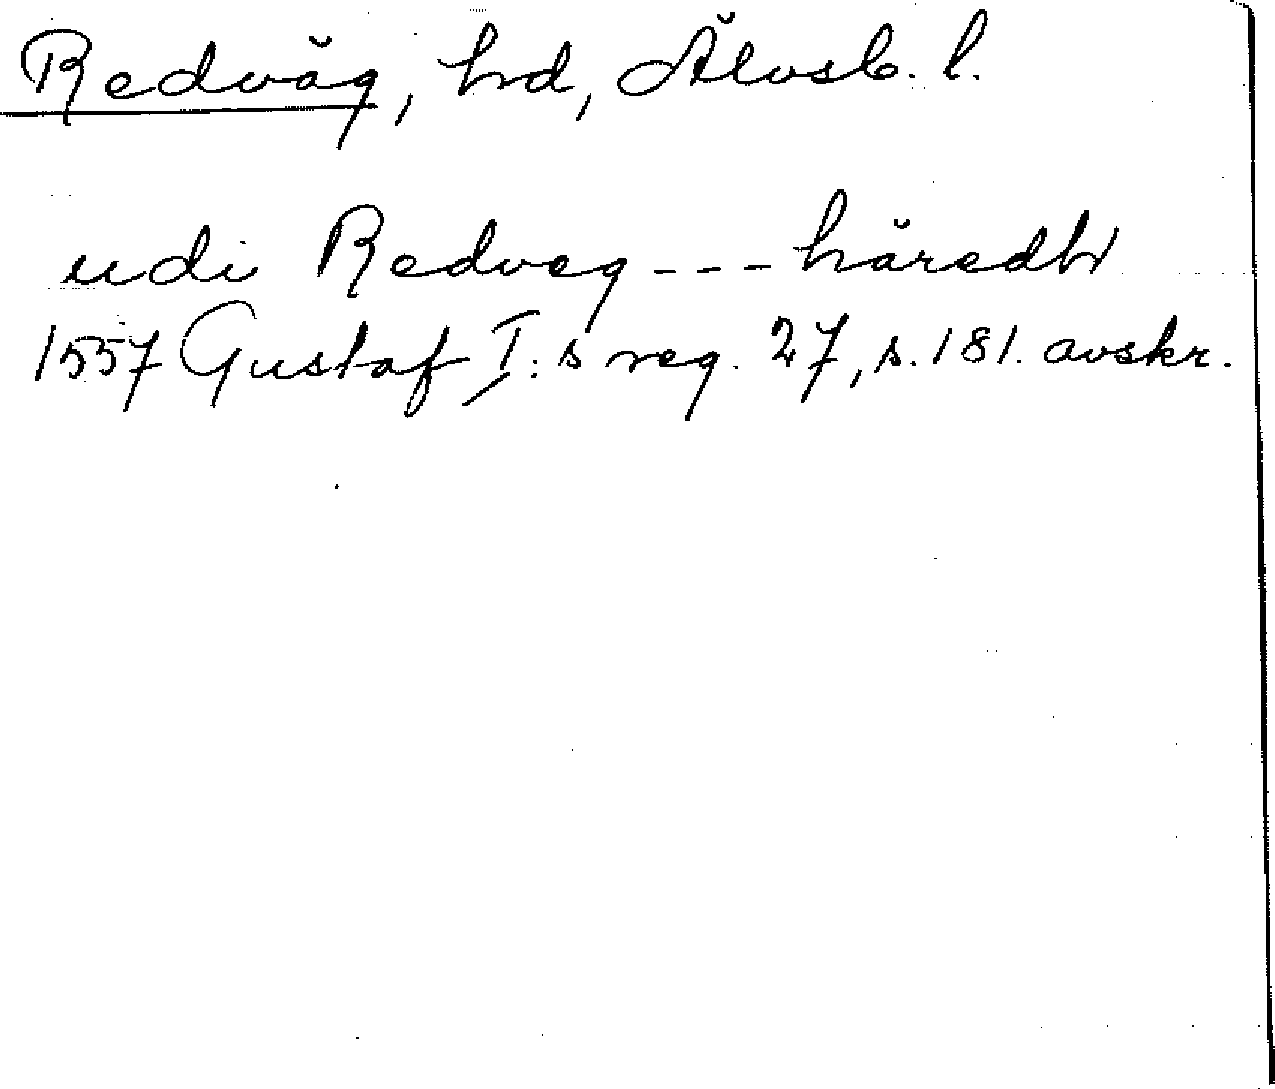 Redväg, hd, Älvsb. l.
udi Redveg --- häredh
1557 Gustaf I:s reg. 27, s. 181. avskr.